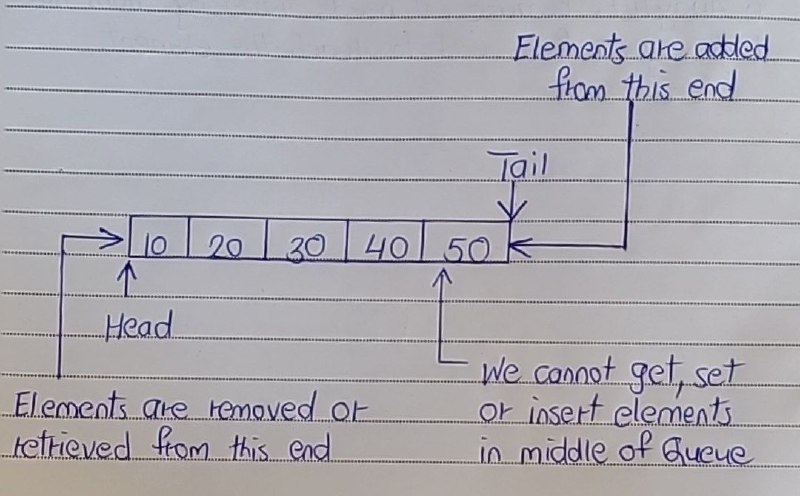 Elements are added
from this end
Tail
10 20 30 40 50
Head
Elements are removed or
retrieved from this end
We cannot get, set
or insert elements
in middle of Queue